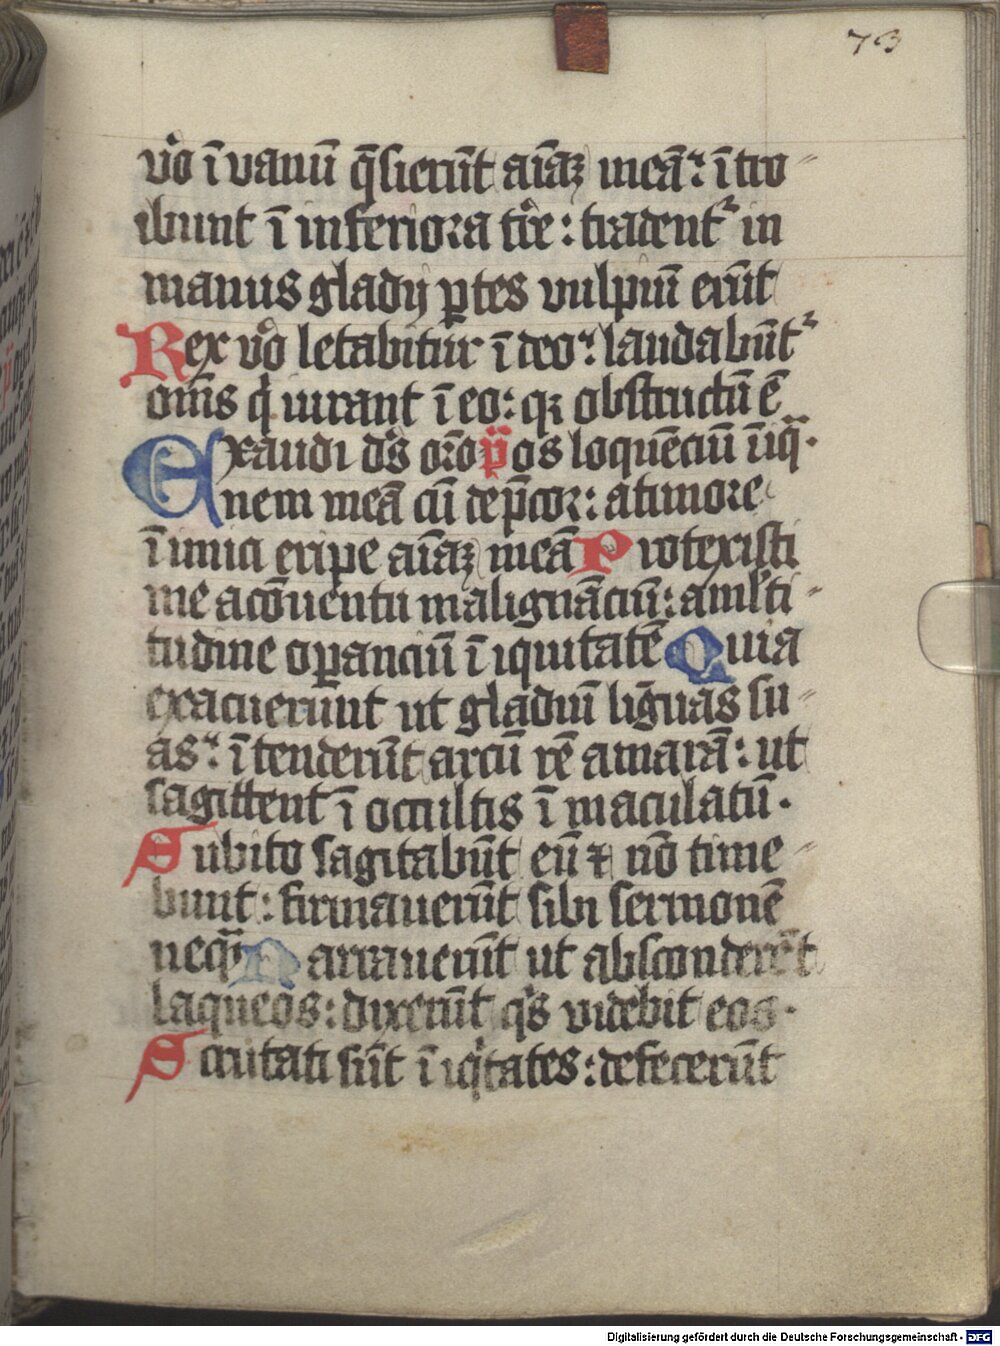 73
vo̾ ī vanū q̄sierūt aīaꝫ meā:ītro-
ibunt ī inferiora tr̄e: tradent᷑ in
manus gladij ꝑtes vulpiū erūt
Rex vo̾ letabitur ī deo: laudabūt᷑
om̄s qͥ iurant ī eo: qꝛ obstructū ē
Exaudi dꝰs oro̅ p̄ os loquēciū īiqͣ.
nem meā cū dep̄cor: a timore
īimici eripe aīaꝫ meā Protexisti
me a cōuentu malignāciū: a ml̾ti-
tudine oꝑanciū īiquitatē Quia
exacuerunt ut gladiū līguas su-
as: ītenderūt arcū rē amarā: ut
sagittent ī occultis īmaculatū.
Subito sagitabūt eū ⁊ nō time-
bunt: firmauerūt sibi sermonē
neqͣ Narrauerūt ut absconderēt
laqueos: dixerūt qͥs videbit eos.
Scrutati sūt īiqͥtates: defecerūt
Digitalisierung gefördert durch die Deutsche Forschungsgemeinschaft - DFG